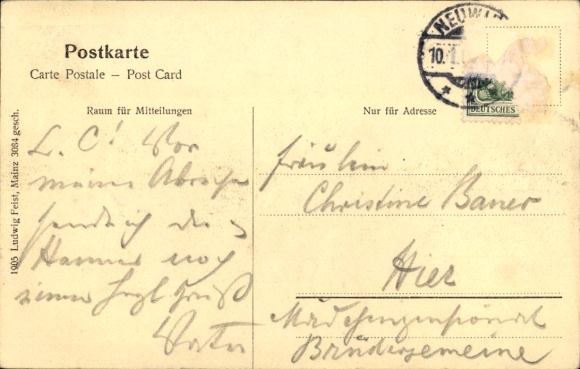 Postkarte
Carte Postale – Post Card
NEUWI
10.1.
DEUTSCHES
Raum für Mitteilungen
Nur für Adresse
1905 Ludwig Feist, Mainz 3084 gesch.
L. C! Vor
meiner Abreise
sende ich dir
noch
einen herzl Gruß
Vater
Fräulein
Christine Bauer
Hier
Mädchenpensionat
Brüdergemeine